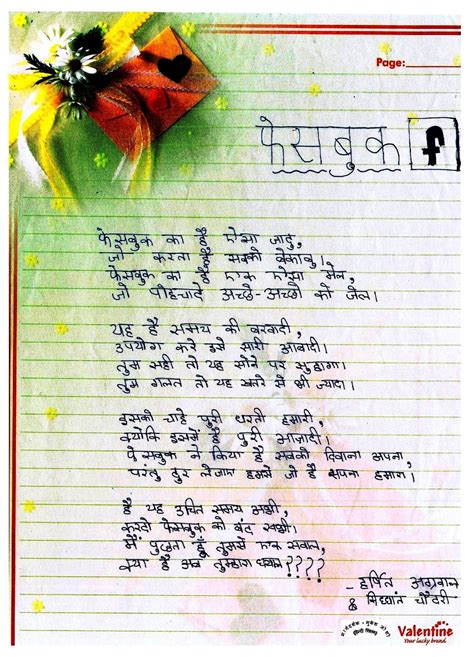 Page:
फेसबुक f
फेसबुक का है ऐसा जादु,
जो करता सबको बेकाबु।
फेसबुक का है एक ऐसा मेल,
जो पोहचादे अच्छे-अच्छो को जेल।
यह है समय की बरबादी,
उपयोग करे इसे सारी आबादी।
तुम सही तो यह सोने पर सुहागा।
तुम गलत तो यह खतरे से भी ज्यादा।
इसको चाहे पुरी धरती हमारी,
क्योंकि इसमें है पुरी आज़ादी।
फेसबुक ने किया है सबको दिवाना अपना,
परंतु दुर लेजाए हमसे जो है अपना हमारा।
है यह उचित समय अभी,
करदो फेसबुक को बंद सभी।
मैं पुछता हूँ तुमसे एक सवाल,
क्या है अब तुम्हारा ख्याल????
- हर्षित अग्रवाल
& सिध्दांत चौधरी
Valentine
Your lucky brand